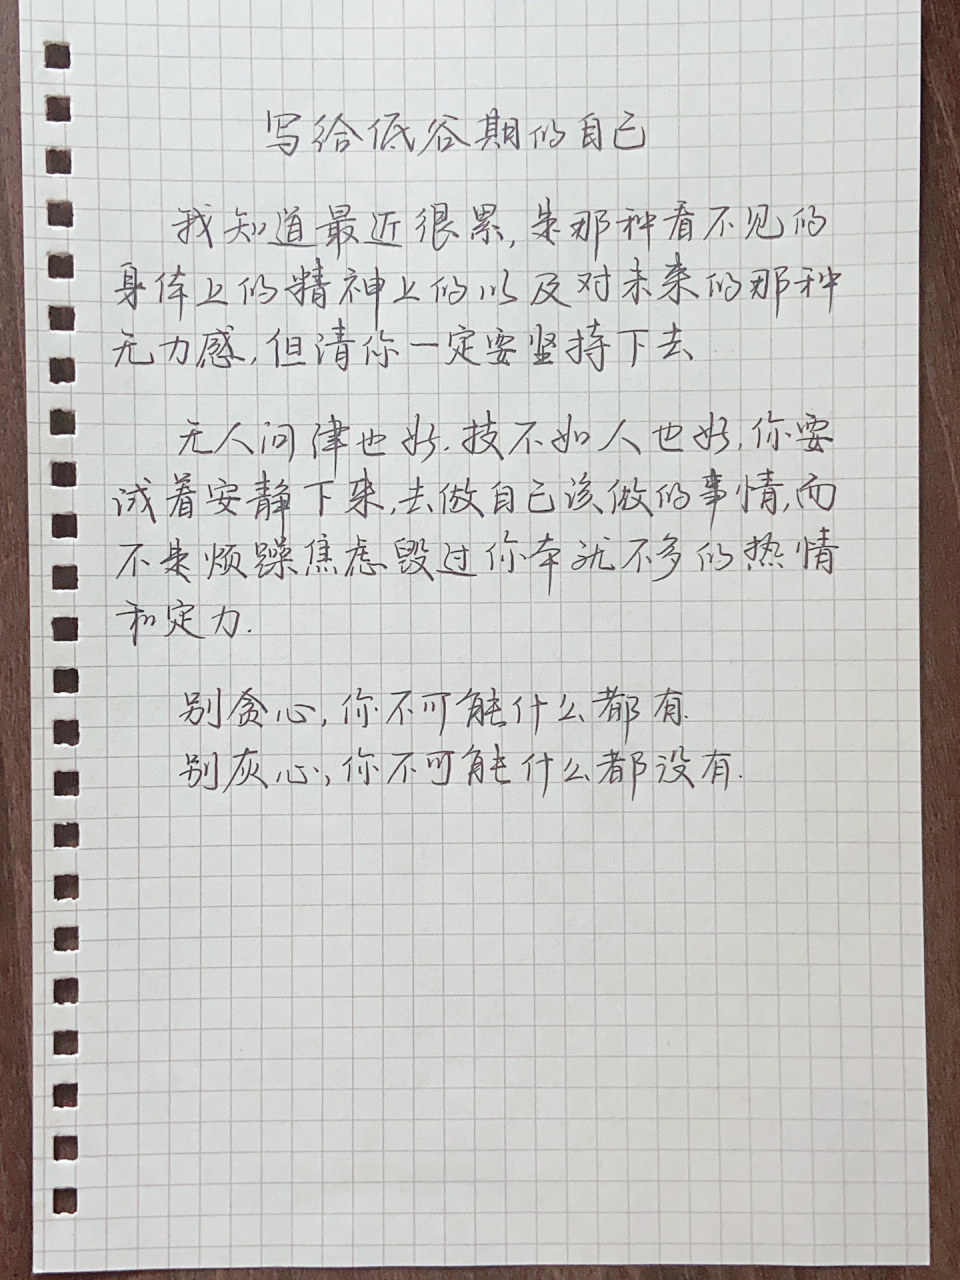 写给低谷期的自己
我知道最近很累,是那种看不见的
身体上的精神上的以及对未来的那种
无力感,但清你一定要坚持下去
无人问律也好.技不如人也好,你要
试着安静下来,去做自己该做的事情,而
不是烦躁焦虑毁过你本就不多的热情
和定力.
别贪心,你不可能什么都有.
别灰心,你不可能什么都没有.